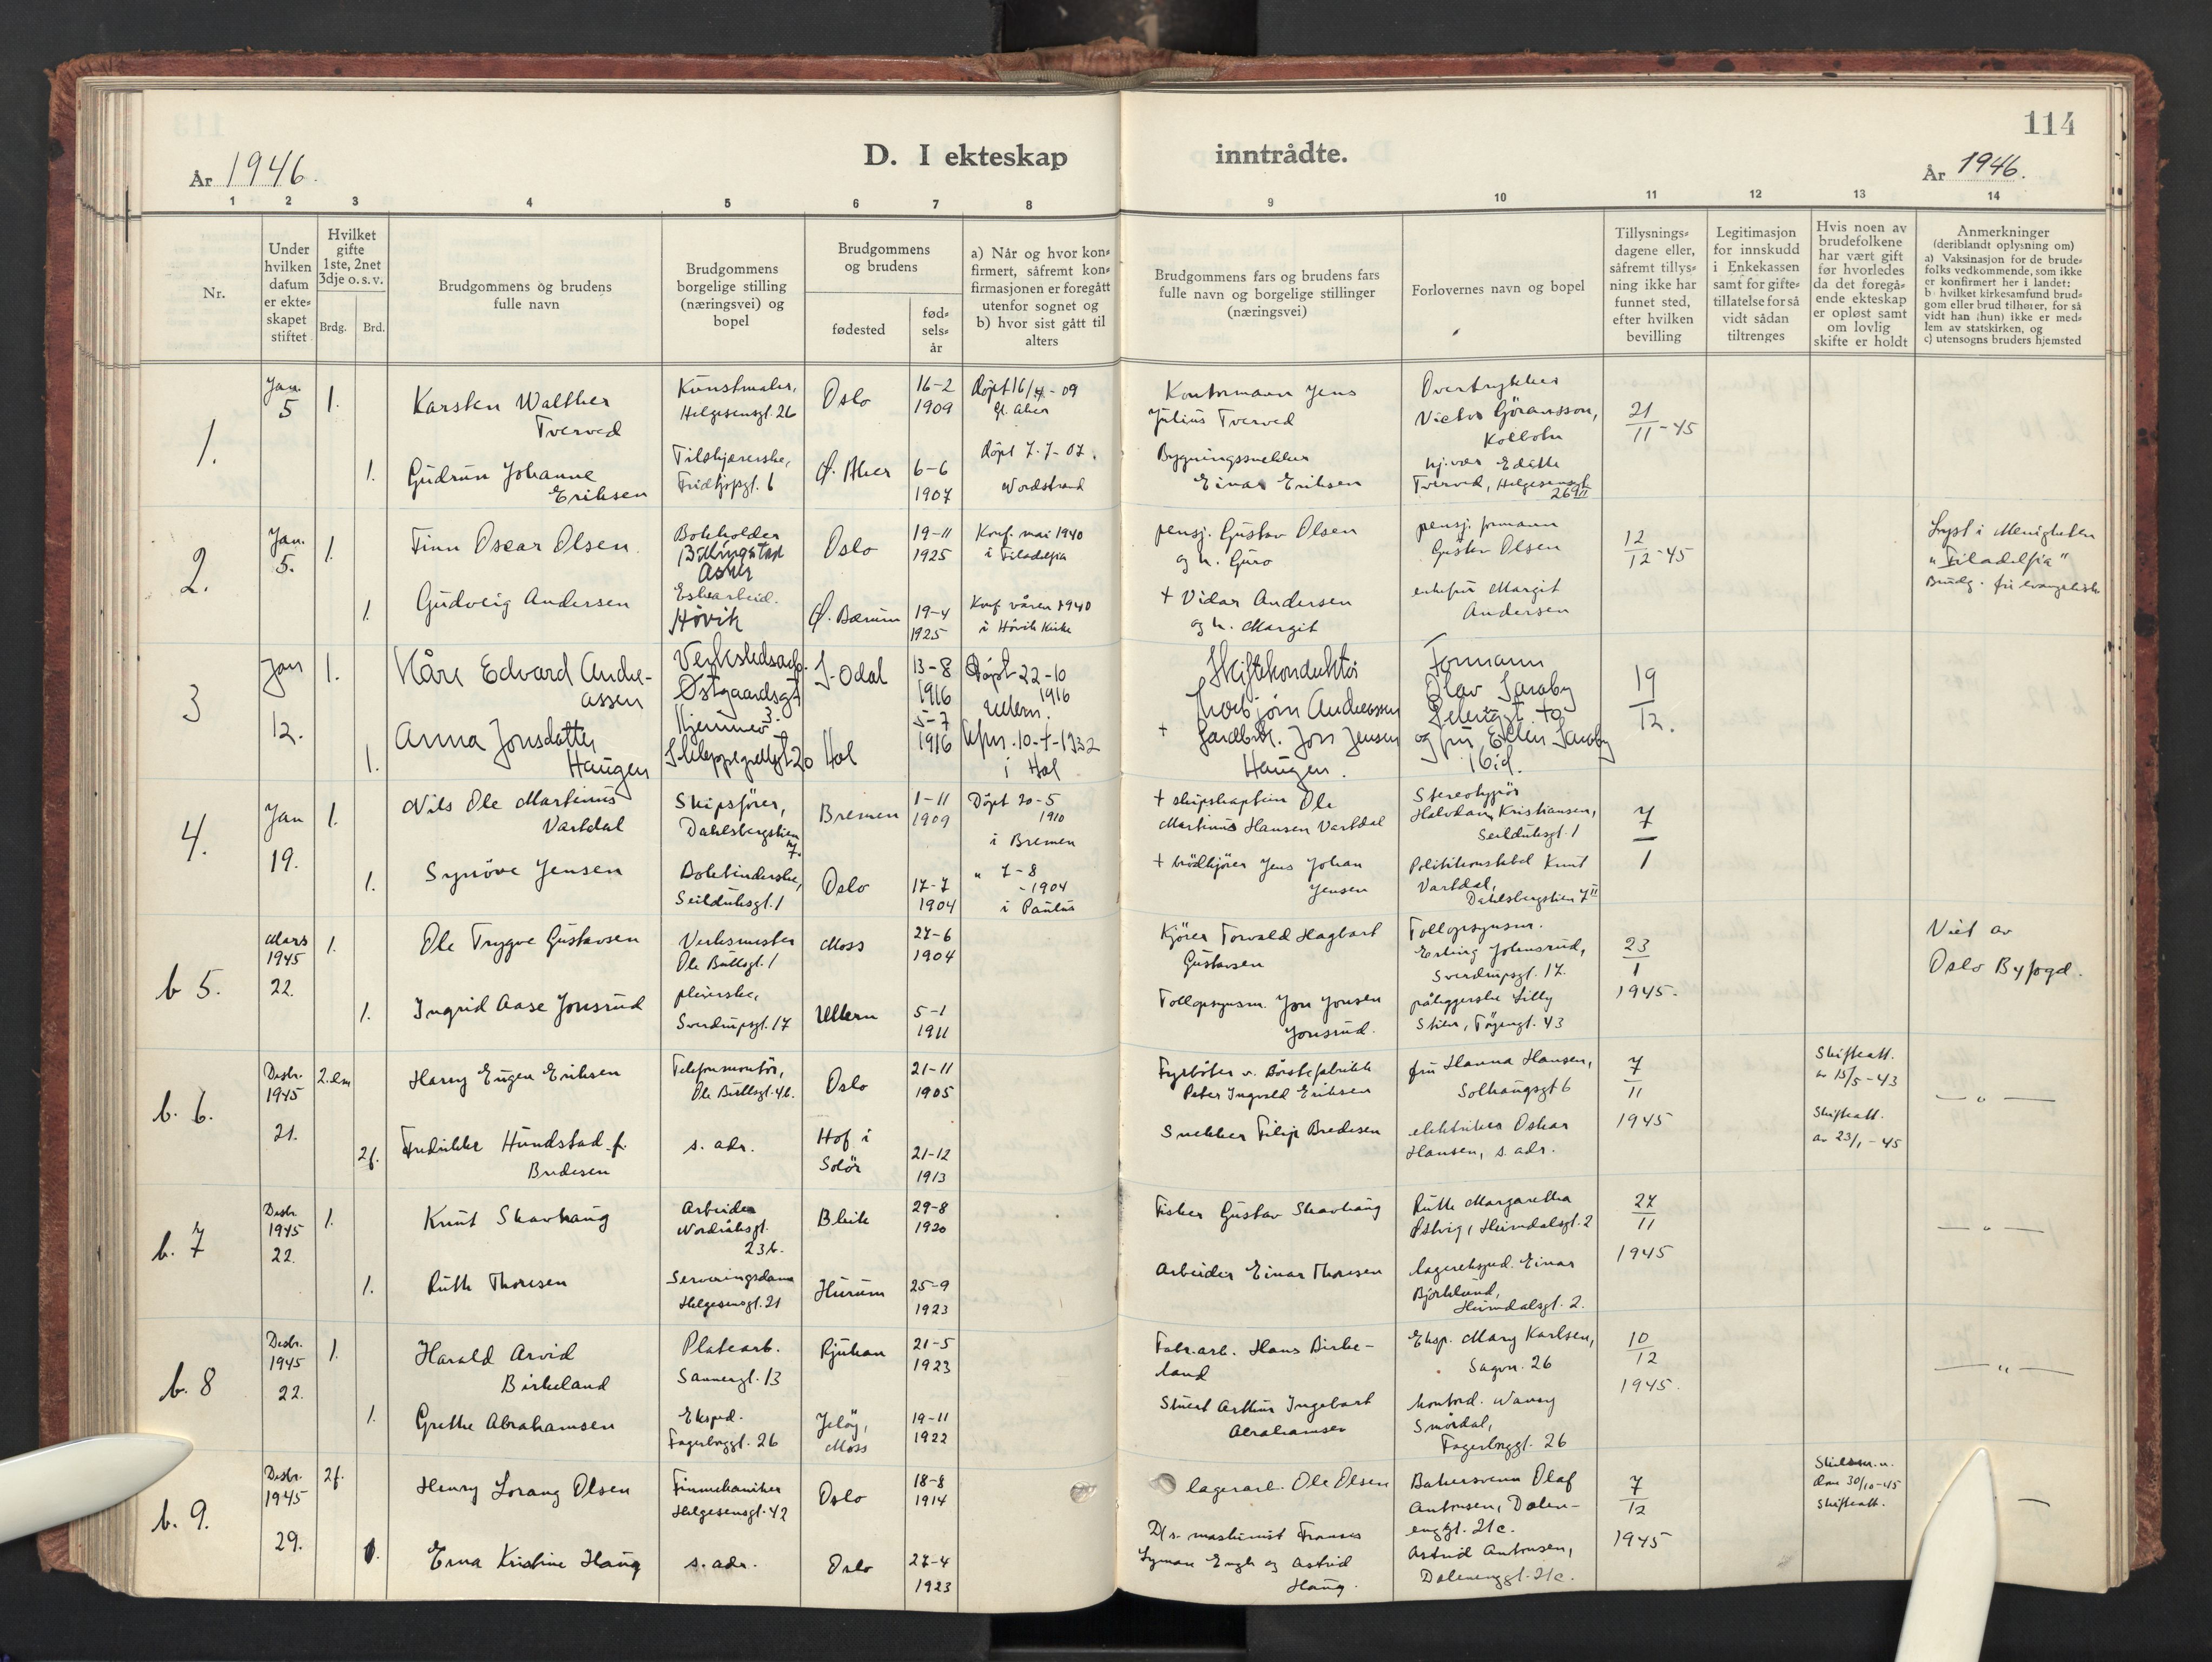 114
D. I ekteskap inntrådte.
År 1946. År 1946.
1 2 3 4 5 6 7 8 9 10 11 12 13 14
Nr.
Under hvilken datum er ekte=skapet stiftet
Hvilket gifte 1ste, 2net 3dje o. s. v.
Brdg. Brd.
Brudgommens og brudens fulle navn
Brudgommens borgelige stilling (næringsvei) og bopel
Brudgommens og brudens
fødested
fød=sels=år
a) Når og hvor kon=firmert, såfremt kon=firmasjonen er foregått utenfor sognet og
b) hvor sist gått til alters
Brudgommens fars og brudens fars fulle navn og borgelige stillinger (næringsvei)
Forlovernes navn og bopel
Tillysnings=dagene eller, såfremt tillys=ning ikke har funnet sted, efter hvilken bevilling
Legitimasjon for innskudd i Enkekassen samt for gifte=tillatelse for så vidt sådan tiltrenges
Hvis noen av brudefolkene har vært gift før hvorledes da det foregå=ende ekteskap er opløst samt om lovlig skifte er holdt
Anmerkninger
(deriblandt oplysning om)
a) Vaksinasjon for de brude=folks vedkommende, som ikke er konfirmert her i landet:
b) hvilket kirkesamfund brud=gom eller brud tilhører, for så vidt han (hun) ikke er med=lem av statskirken, og
c) utensogns bruders hjemsted
1.
Jan. 5
1.
Karsten Walther Tverved
Kunstmaler, Helgesensgt. 26
Oslo
16-2 1909
Døpt 16/4-09 Gl. Aker
Kontormann Jens Julius Tverved
Overtrykker Victor Göransson, Kolbotn
21/11-45
1.
Gudrun Johanne Eriksen
Tilskjærerske, Fridtjofsgt. 6
Ø. Aker
6-6 1907
Døpt 7.7-07. Nordstrand
Bygningssnekker Einar Eriksen
hj.vær Edith Tverved, Helgesensgt. 26 II
2.
Jan. 5.
1.
Finn Oscar Olsen
Bokholder Billingstad Asker
Oslo
19-11 1925
Konf. mai 1940 i Filadelfia
pensj. Gustav Olsen og h. Guro
pensj. formann Gustav Olsen
12/12-45
Lyst i Menigheten "Filadelfia" Brudg. fri evangelisk
1.
Gudveig Andersen
Eskearbeid. Høvik
Ø. Bærum
19-4 1925
Konf våren 1940 i Høvik Kirke
+ Vidar Andersen og h. Margit
enkefru Margit Andersen
3
Jan 12.
1.
Kåre Edvard Andreassen
Verkstedsarb. Østgaardsgt 3.
S. Odal
13-8 1916
Døpt 22-10 1916 Ullern.
Skiftekonduktør Thorbjørn Andreassen
Formann Olav Saraby
19/12.
1.
Anna Jonsdatter Haugen
Hjemmev.
Hol
5-7 1916
10-7-1932 i Hol
+ Gardbr. Jon Jensen Haugen.
og fru Ellen Saraby ibid.
4.
Jan 19.
1.
Nils Ole Martinus Vartdal
Skipsfører, Dahlsbergstien 7.
Bremen
1-11 1909
Døpt 20-5 1910 i Bremen
+ skipskaptein Ole Martinus Hansen Vartdal
Stereotypör Halvdan Kristiansen, Seilduksgt. 1
7/1
1.
Synöve Jensen
Bokbinderske, Seilduksgt. 1
Oslo
17-7 1904
" 7-8 -1904 i Paulus
+ brödkjörer Jens Johan Jensen
Politikonstabel Knut Vartdal, Dahlsbergstien 7 II
b 5.
Mars 1945 22.
1.
Ole Trygve Gustavsen
Verksmester Ole Bullsgt. 1
Moss
27-6 1904
Kjører Torvald Hagbart Gustavsen
Tollopsynsm. Erling Johnsrud, Sverdrupsgt. 17.
23/1 1945.
Viet av Oslo Byfogd.
1.
Ingrid Aase Jonsrud
pleierske, Sverdrupsgt. 17
Ullern
5-1 1911
Tollopsynsm. Jon Jonsen Jonsrud.
påleggerske Lilly Stien, Töyengt. 43
b. 6.
Desbr. 1945 21.
2. em
Harry Eugen Eriksen
Telefonmontör, Ole Bullsgt. 4b.
Oslo
21-11 1905
Fyrböter v. Börstefabrikk Peter Ingvald Eriksen
fru Hanna Hansen, Solhaugsgt 6
7/11 1945
Skifteatt. av 15/5-43
— " —
2f.
Fredrikke Hundstad f. Bredesen
s. adr.
Hof i Solör
21-12 1913
Snekker Filip Bredesen
elektriker Oskar Hansen, s. adr.
Skifteatt. av 23/1-45
b. 7
Desbr. 1945 22.
1.
Knut Skavhaug
Arbeider Nordråksgt. 23b.
Bleik
29-8 1920
Fisker Gustav Skavhaug
Ruth Margaretha Østvig, Heimdalsgt. 2
27/11 1945
— " —
1.
Ruth Thoresen
Serveringsdame Helgesensgt. 21
Hurum
25-9 1923
Arbeider Einar Thoresen
lagerekspd. Einar Björklund, Heimdalsgt. 2.
b. 8
Desbr. 1945 22.
1.
Harald Arvid Birkeland
Platearb. Sannergt. 13
Rjukan
21-5 1923
Fabr.arb. Hans Birkeland
Eksp. Mary Karlsen, Sagvn. 26
10/12 1945.
— " —
1.
Grethe Abrahamsen
Ekspd. Fagerborggt. 26
Jelöy, Moss
19-11 1922
Stuert Arthur Ingebart Abrahamsen
kontord. Wanny Smördal, Fagerborggt. 26
b. 9.
Desbr. 1945 29.
2f.
Henry Lorang Olsen
Finmekaniker Helgesensgt. 42
Oslo
18-8 1914
lagerarb. Ole Olsen
Bakersvenn Olaf Antonsen, Dalenenggt. 21c.
7/12 1945
30/10-45 Skifteatt.
—
1.
Erna Kristine Haug
s. adr.
Oslo
27-4 1923
D/s. maskinist Frances Lyman Engh og Astrid Haug.
Astrid Antonsen, Dalenenggt. 21c.